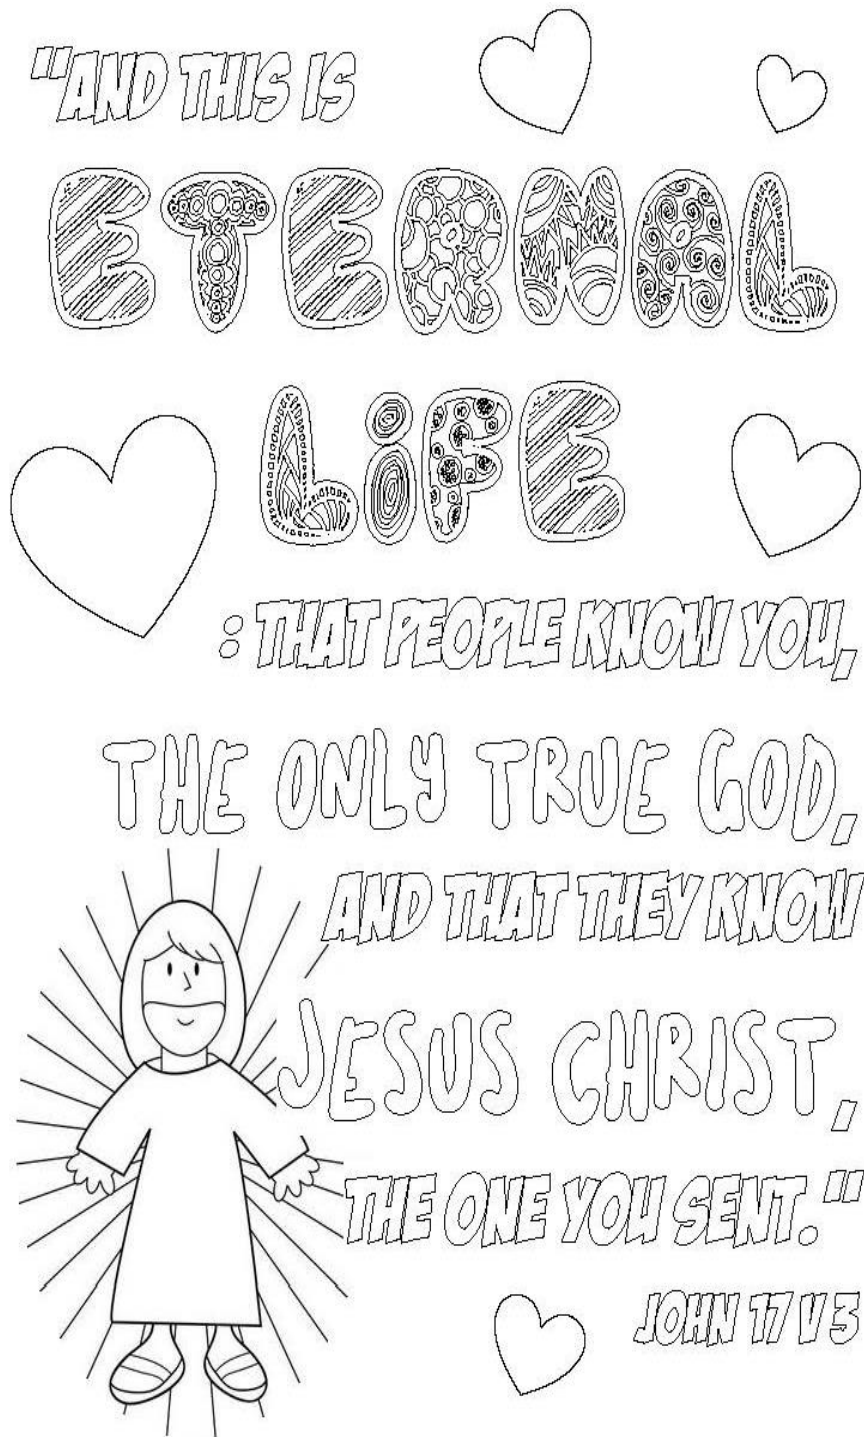 "AND THIS IS
ETERNAL
LiFE
: THAT PEOPLE KNOW YOU,
THE ONLY TRUE GOD,
AND THAT THEY KNOW
JESUS CHRIST,
THE ONE YOU SENT."
JOHN 17 V 3